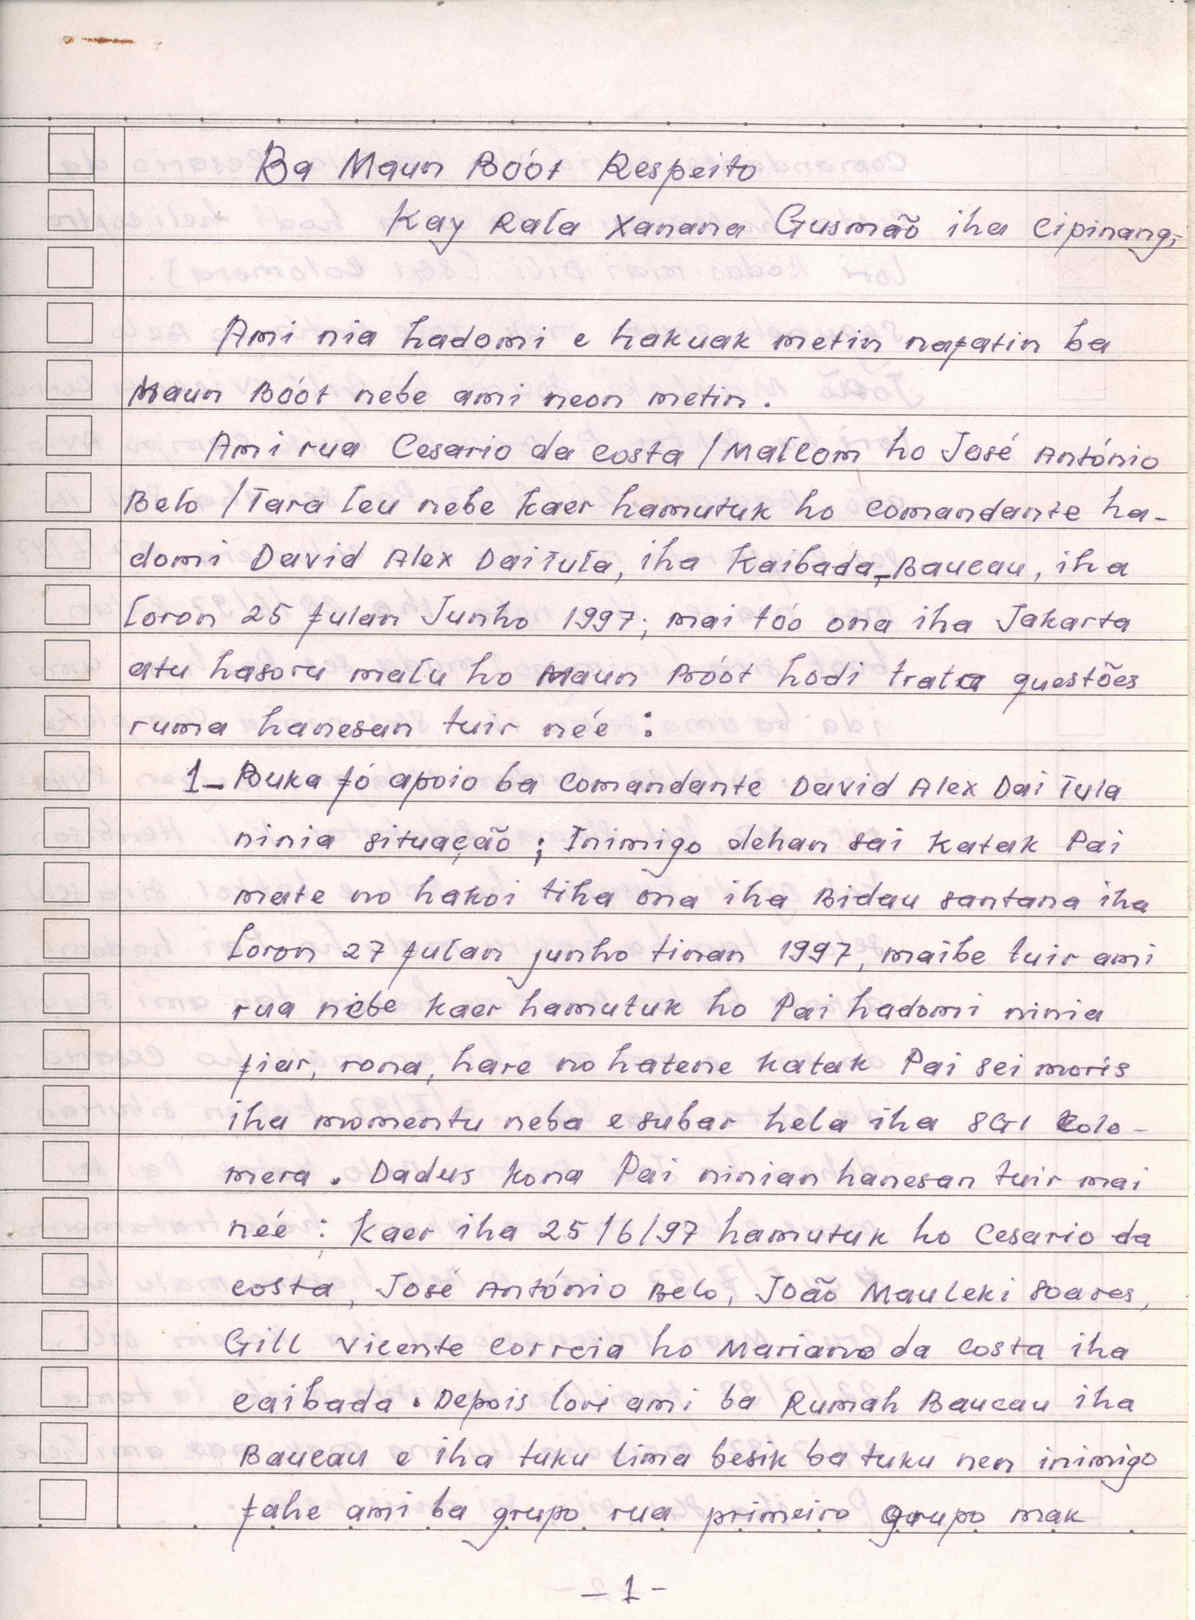 Ba Maun Bóót Respeito
Kay Rala Xanana Gusmão iha Cipinang;
Ami nia hadomi e hakuak metin nafatin ba
Maun Bóót nebe ami neon metin.
Ami rua Cesario da Costa / Mallom ho José António
Belo / Tara leu nebe kaer hamutuk ho Comandante ha-
domi David Alex Daitula, iha Kaibada-Baucau, iha
loron 25 fulan Junho 1997; mai tóo ona iha Jakarta
atu hasoru malu ho Maun Bóót hodi trata questões
ruma hanesan tuir née :
1- Buka fó apoio ba Comandante David Alex Dai Tula
ninia situação ; Inimigo dehan sai katak Pai
mate no hakoi tiha ona iha Bidau Santana iha
loron 27 fulan junho tinan 1997, maibe tuir ami
rua nebe kaer hamutuk ho Pai hadomi ninia
fiar, rona, hare no hatene katak Pai sei moris
iha momentu neba e subar hela iha SGI Colo-
mera. Dadus kona Pai ninian hanesan tuir mai
née : Kaer iha 25/6/97 hamutuk ho Cesario da
Costa, José António Belo, João Mauleki Soares,
Gill Vicente Correia ho Mariano da Costa iha
Caibada. Depois lori ami ba Rumah Baucau iha
Baucau e iha tuku lima besik ba tuku nen inimigo
fahe ami ba grupo rua primeiro grupo mak
- 1 -